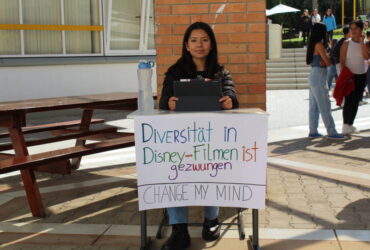 Diversität in
Disney-Filmen ist
gezwungen
CHANGE MY MIND